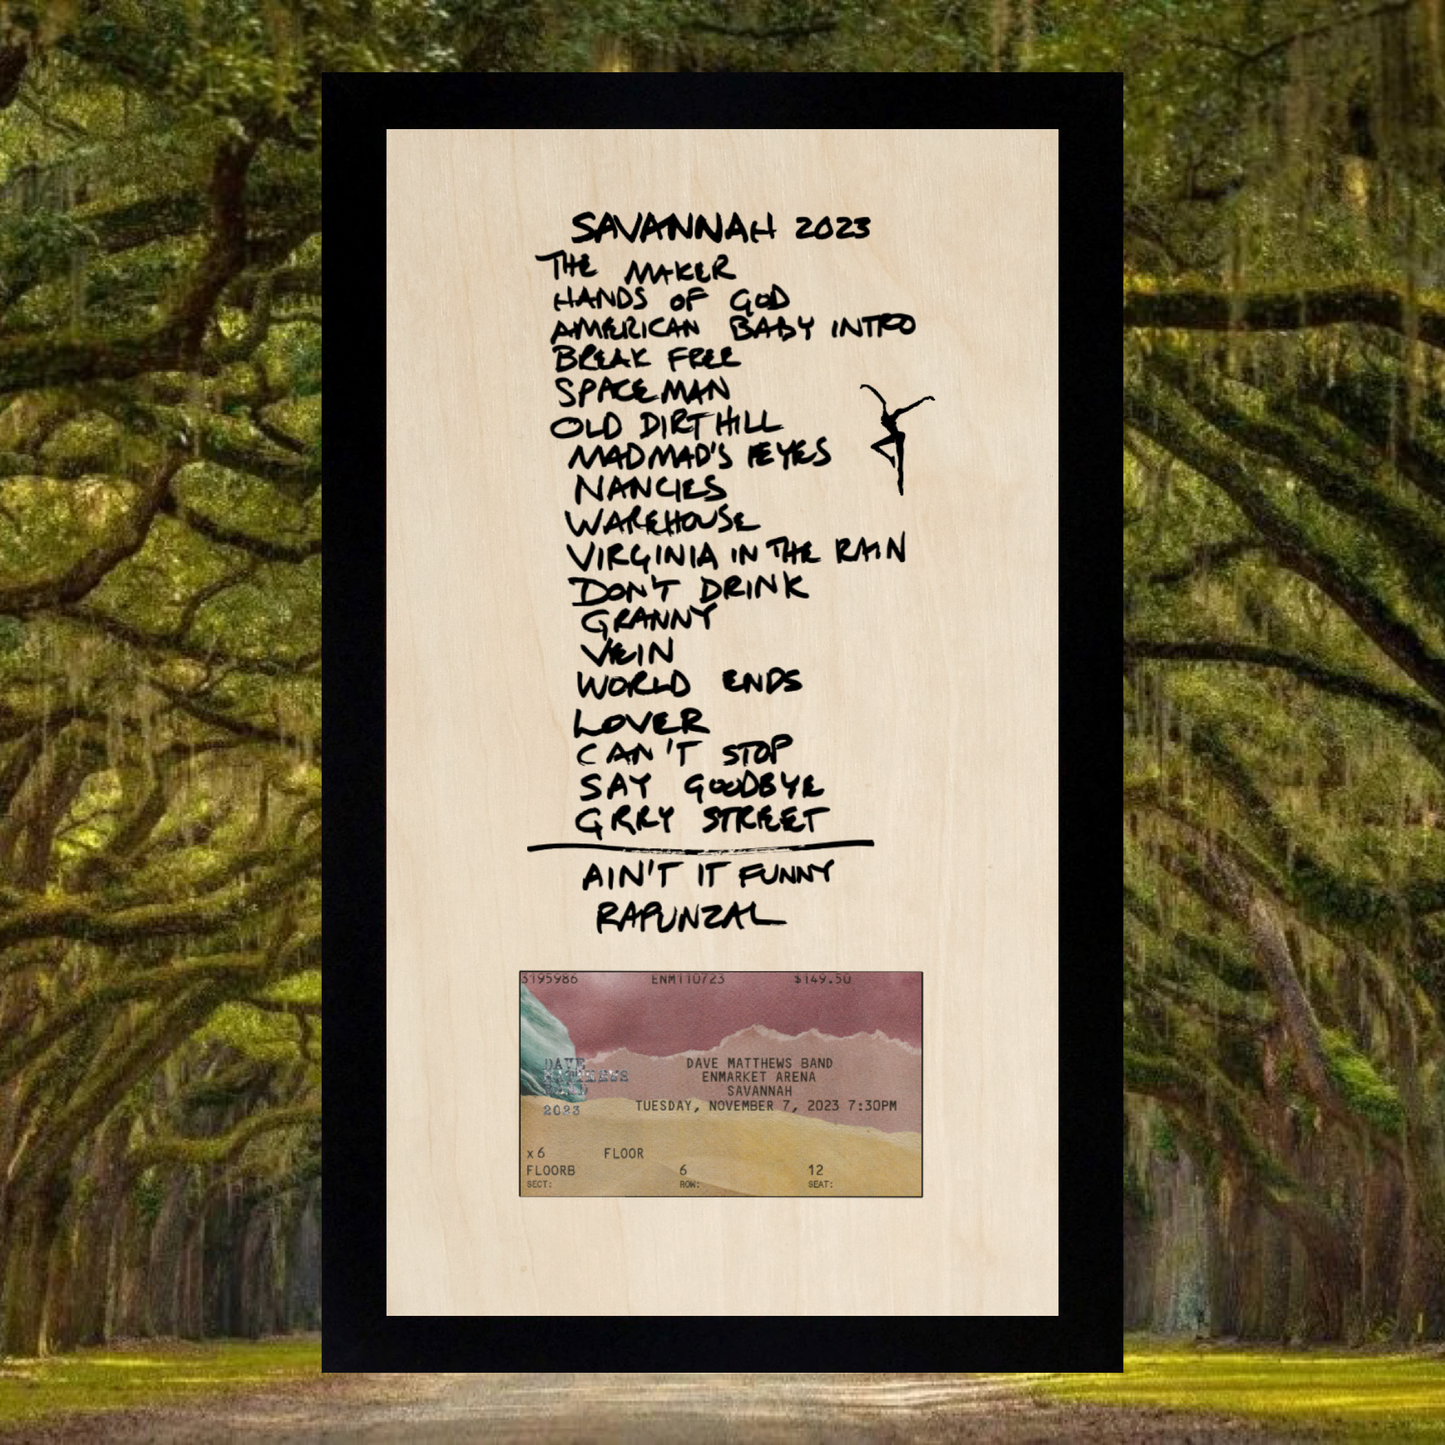 SAVANNAH 2023
THE MAKER
HANDS OF GOD
AMERICAN BABY INTRO
BREAK FREE
SPACEMAN
OLD DIRT HILL
MADMAD'S EYES
NANCIES
WAREHOUSE
VIRGINIA IN THE RAIN
DON'T DRINK
GRANNY
VEIN
WORLD ENDS
LOVER
CAN'T STOP
SAY GOODBYE
GREY STREET
AIN'T IT FUNNY
RAPUNZAL
3195986 ENM110723 $149.50
DAVE MATTHEWS BAND
ENMARKET ARENA
SAVANNAH
TUESDAY, NOVEMBER 7, 2023 7:30PM
DAVE
MATTHEWS
BAND
2023
x6 FLOOR
FLOORB 6 12
SECT: ROW: SEAT: